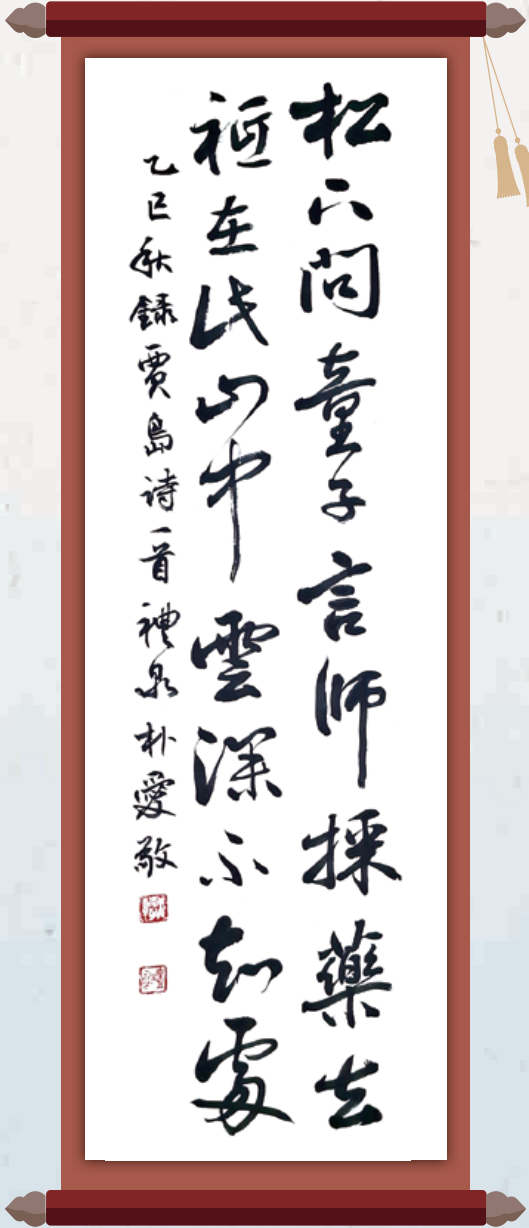 松下問童子言師採藥去
祗在此山中雲深不知處
乙巳秋錄賈島詩一首 禮泉 朴愛敬